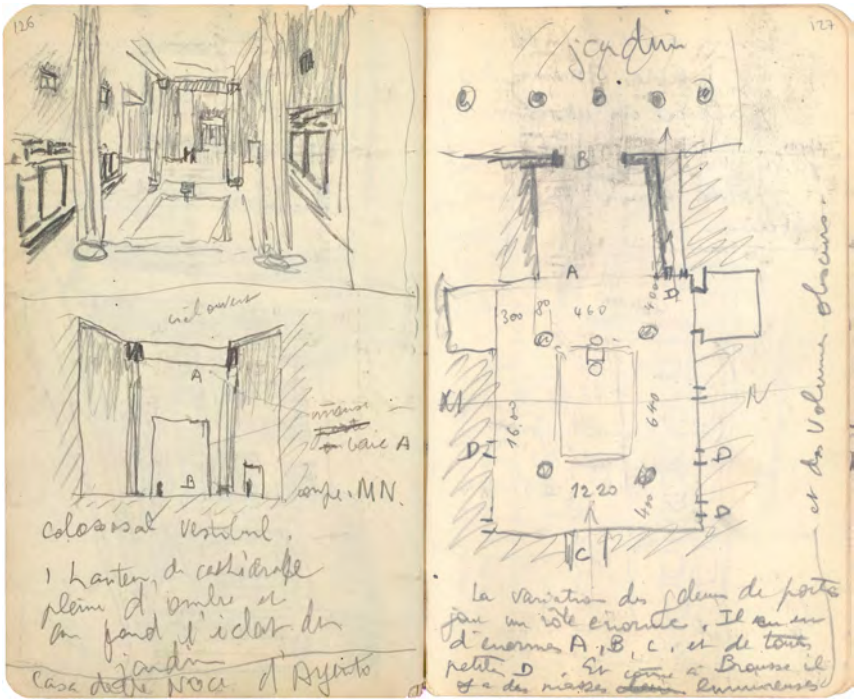 126
ciel ouvert
A
B
baie A
coupe MN.
colossal vestibul.
1 Hauteur de cathédrale
pleine d'ombre et
au fond l'éclat du
jardin
Casa delle Noce d'Argento
127
jardin
B
A
300 80 460 400
D
M N
16.60 640
D D
1220 400
D
C
La variation des grdeurs de porte
joue un rôle énorme. Il y en
d'énormes A, B, C, et de toutes
petites D. Et comme à Brousse il
y a des masses lumineuses
et des Volumes obscurs.